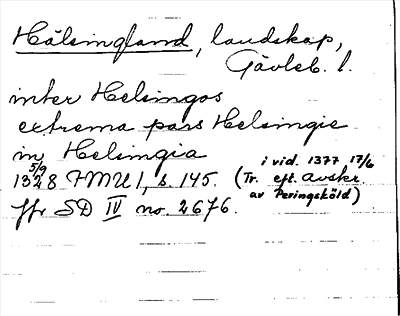 Hälsingland, landskap,
Gävleb. l.
inter Helsingos
extrema pars Helsingie
in Helsingia
5/9 i vid. 1377 17/6
1328 FMU I, s. 145. (Tr. eft. avskr.
av Peringsköld)
Jfr SD IV no. 2676.